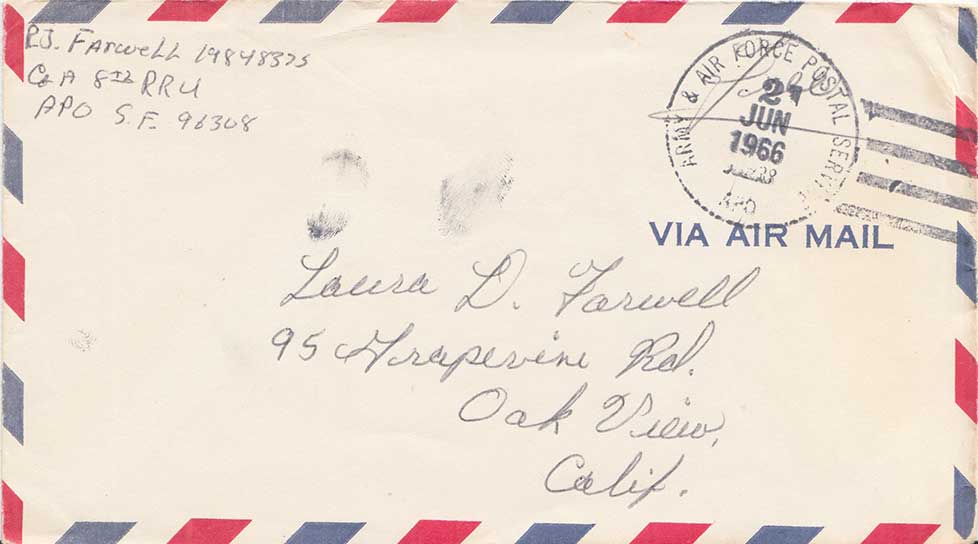 R.J. Farwell 19848375
Co A 8th RRU
APO S.F. 96308
ARMY & AIR FORCE POSTAL SERVICE
Free
21
JUN
1966
APO
VIA AIR MAIL
Laura D. Farwell
95 Grapevine Rd.
Oak View,
Calif.